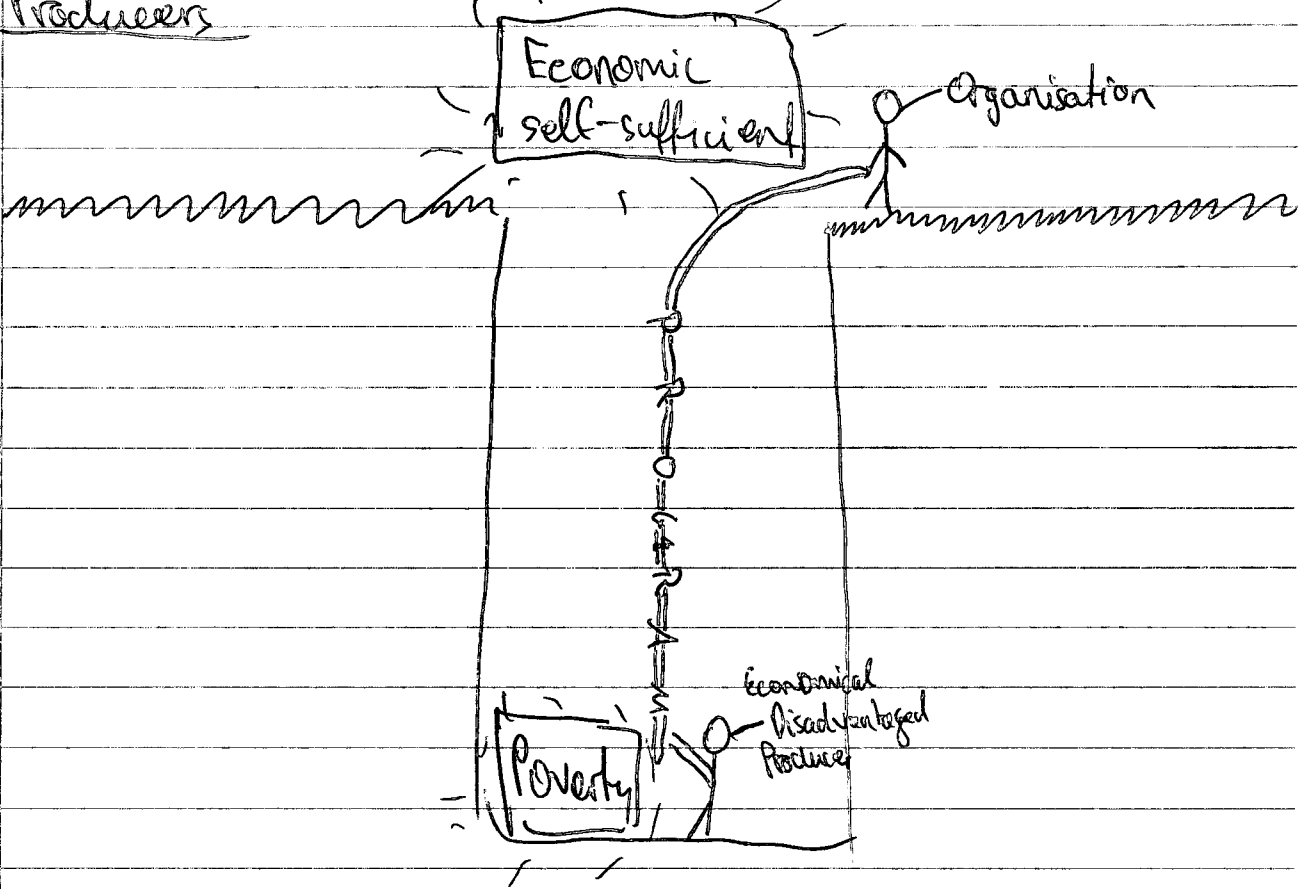 Producers
Economic
self-sufficient
Organisation
PROGRAM
Economical
Disadvantaged
Producer
Poverty